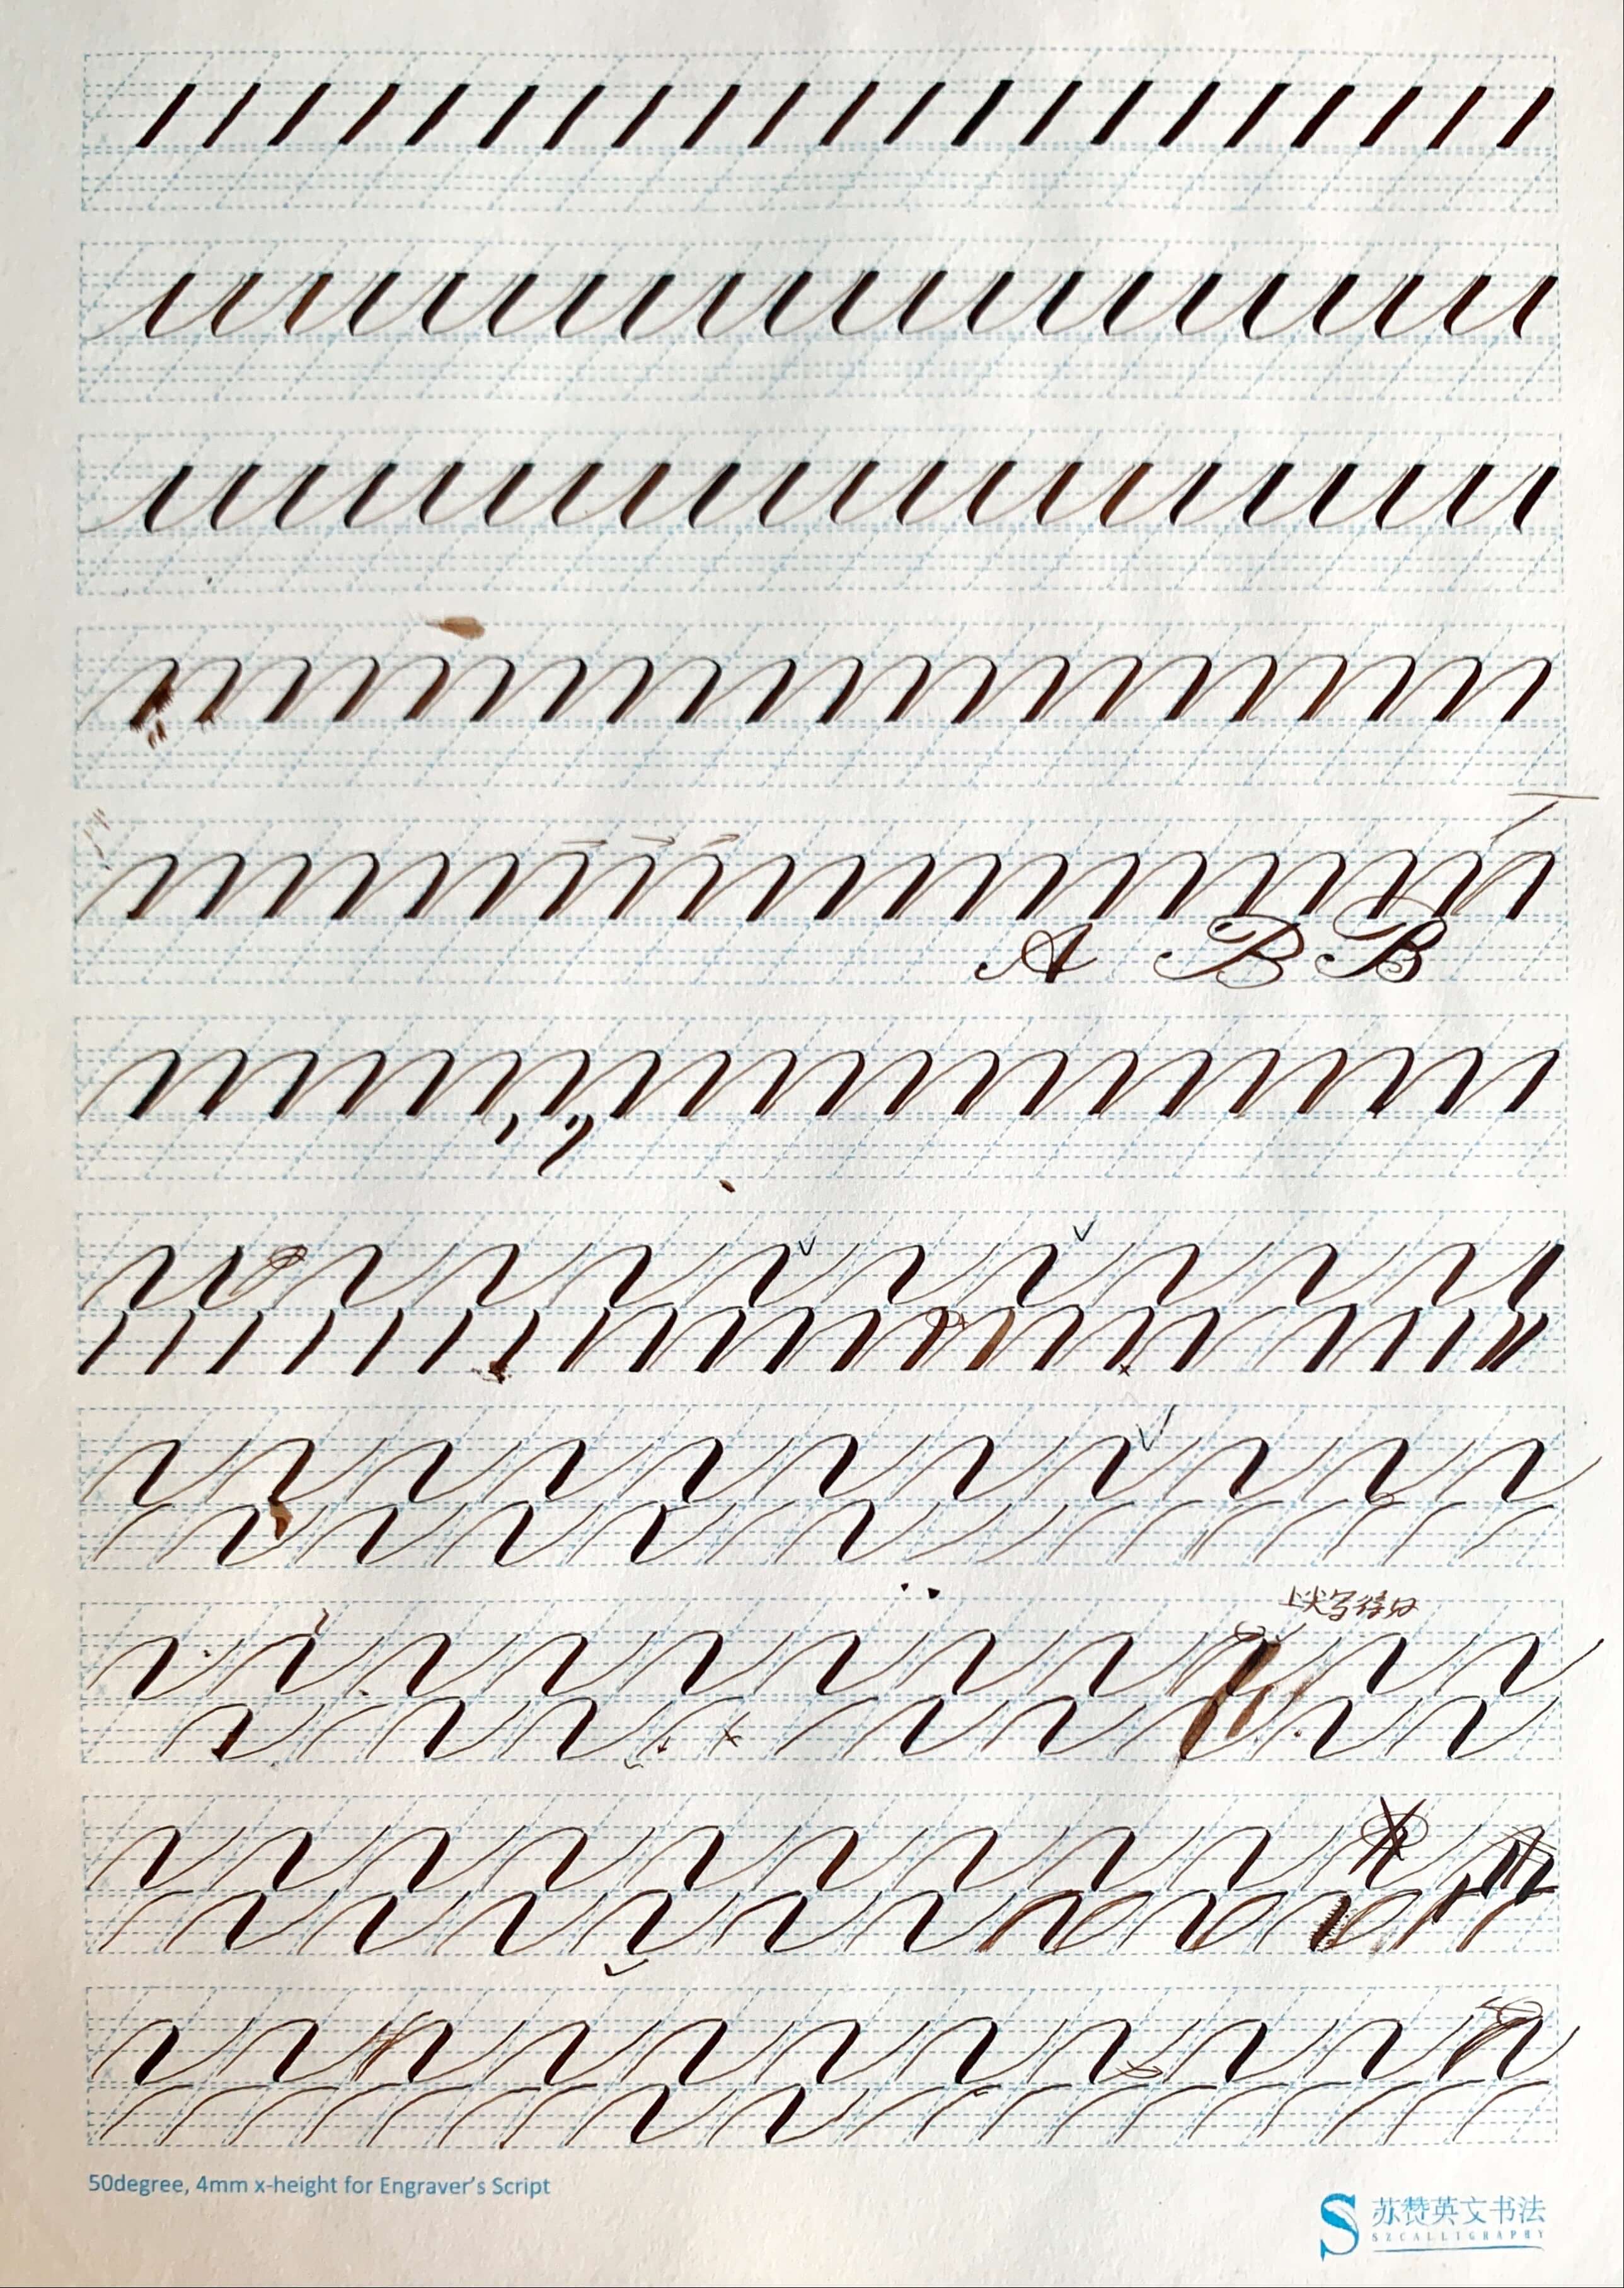 A B B
上尖写得好
50degree, 4mm x-height for Engraver's Script
苏赞英文书法
SZCALLIGRAPHY